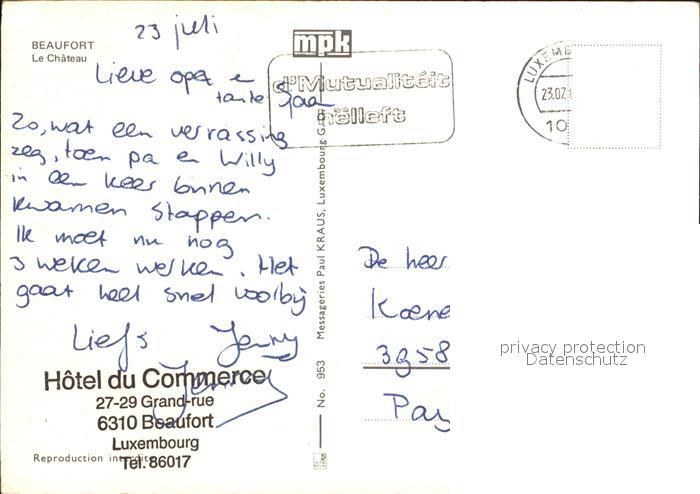 23 juli
BEAUFORT
Le Château
mpk
Lieve opa en
tante Jaan
d'Mutualitéit
hëlleft
LUXEMB
23.07
10
Zo, wat een verrassing
zeg, toen pa en Willy
in een keer binnen
kwamen stappen.
Ik moet nu nog
3 weken werken. Het
gaat heel snel voorbij
Liefs Jenny
Jenny
Hôtel du Commerce
27-29 Grand-rue
6310 Beaufort
Luxembourg
Tél. 86017
Reproduction interdite
No. 953 Messageries Paul KRAUS, Luxembourg-Gare
De heer
Koene
3958
Pay
privacy protection
Datenschutz